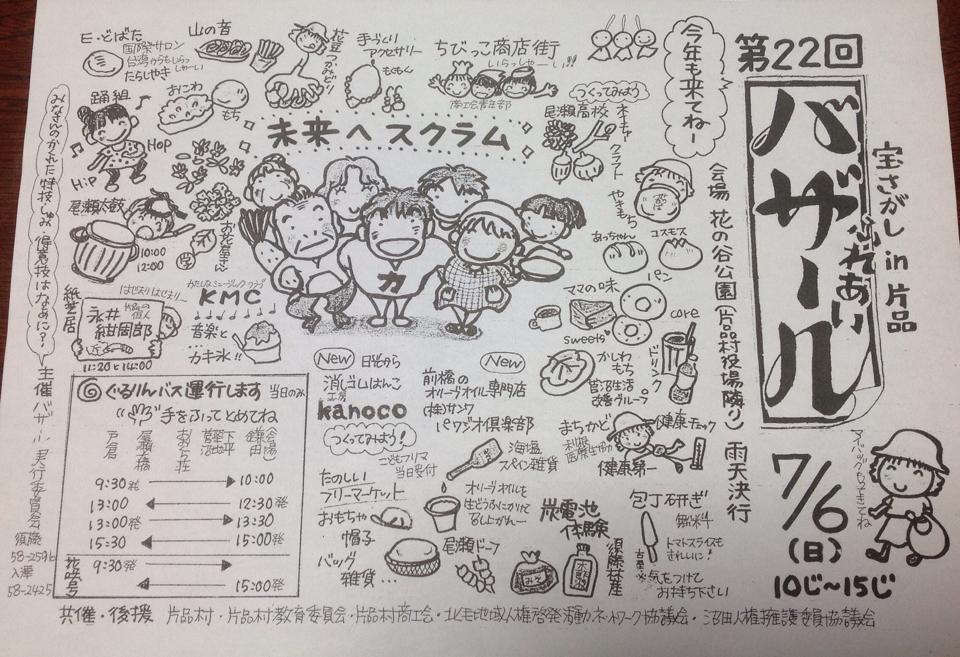 第22回
宝さがし in 片品
ふれあい
バザール
7/6
(日)
10じ〜15じ
マイバッグもってきてね
今年も来てね〜
会場 花の谷公園(片品村役場隣り)
雨天決行
E・どばた
国際サロン
たらしやき
山の音
花豆つかみどり
手づくり
アクセサリー
ちびっこ商店街
いらっしゃーい!!
商工会青年部
つくってみよう
尾瀬高校
クラフト
おにわ
もち
踊組
HOP
HIP
未来へスクラム
尾瀬太鼓
10:00
12:00
お花屋さん
やきもち
あっちゃん
コスモス
パン
ママの味
sweets
ドリンク
力
KMC
音楽と
カキ氷!!
紙芝居
永井紺周郎
11:20と14:00
かしわもち
菅沼生活改善グループ
New
消しゴムはんこ
工房
kanoco
つくってみよう!
New
前橋の
オリーブオイル専門店
(株)サンワ
パワジオ倶楽部
海塩
スペイン雑貨
オリーブオイルを
まちかど
健康チェック
利根医療生協
健康第一
包丁研ぎ
無料
トマトスライスも
きれいに!
※気をつけて
お持ち下さい
たのしい
フリーマーケット
こどもフリマ
当日受付
おもちゃ
帽子
バッグ
雑貨…
尾瀬ドーフ
炭電池
体験
みそ
木酢液
須藤林産
ぐるりんバス運行します 当日のみ
手をふってとめてね
戸倉
尾瀬大橋
9:30発 → 10:00
13:00 ← 12:30発
13:00発 → 13:30
15:30 ← 15:00発
花咲号
9:30発 →
← 15:00発
みなさんのかくれた特技じまん 優秀技はなあに?
主催 バザール実行委員会
須藤
58-2596
入澤
58-2425
共催・後援 片品村・片品村教育委員会・片品村商工会・北毛地域人権啓発活動ネットワーク協議会・沼田人権擁護委員協議会